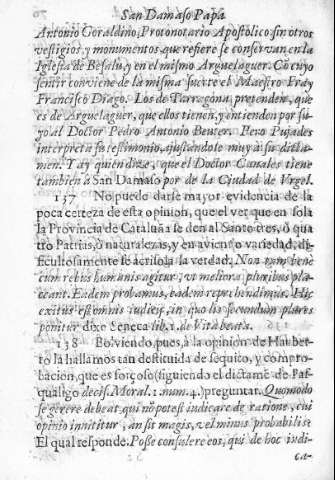 San Damaso Papa
Antonio Geraldino, Protonotario Apostolico sin otros
vestigios, y monumentos que refiere se conservan en la
Iglesia de Besalu, y en el mismo Arguelaguer. Co cuyo
sentir conviene de la misma suerte el Maestro Fray
Francisco Diago. Los de Tarragona pretenden, que
es de Arguelaguer, que ellos tienen, y entienden por su-
yo al Doctor Pedro Antonio Beuter. Pero Pujades
interpreta su testimonio, ajustandole muy à su dicta-
men. Y ay quien dize, que el Doctor Canales tiene
tambien à San Damaso por de la Ciudad de Vrgel.
137 No puede darse mayor evidencia de la
poca certeza de esta opinion, que el ver que en sola
la Provincia de Cataluña se den al Santo tres, ò qua
tro Patrias, ò naturalezas, y en aviento variedad, di-
ficultosamente se acrisola la verdad. Non tam bene
cum rebus humanis agitur, vt meliora pluribus pla-
ceant. Eadem probamus, eadem reprehendimus. Hic
exitus est omnis iudicij, in quo lis secundum plures
ponitur dixo Seneca lib. 1. de Vita beata.
138 Bolviendo, pues, à la opinion de Hauber
to la hallamos tan destituida de sequito, y compro-
bacion, que es forçoso (siguiendo el dictame de Pas-
qualigo decis. Moral. 1. num. 4.) preguntar. Quomodo
se gerere debeat qui nõ potest iudicare de ratione, cui
opinio innititur, an sit magis, vel minus probabilis?
El qual responde. Posse consulere eos, qui de hoc iudi-
ca-